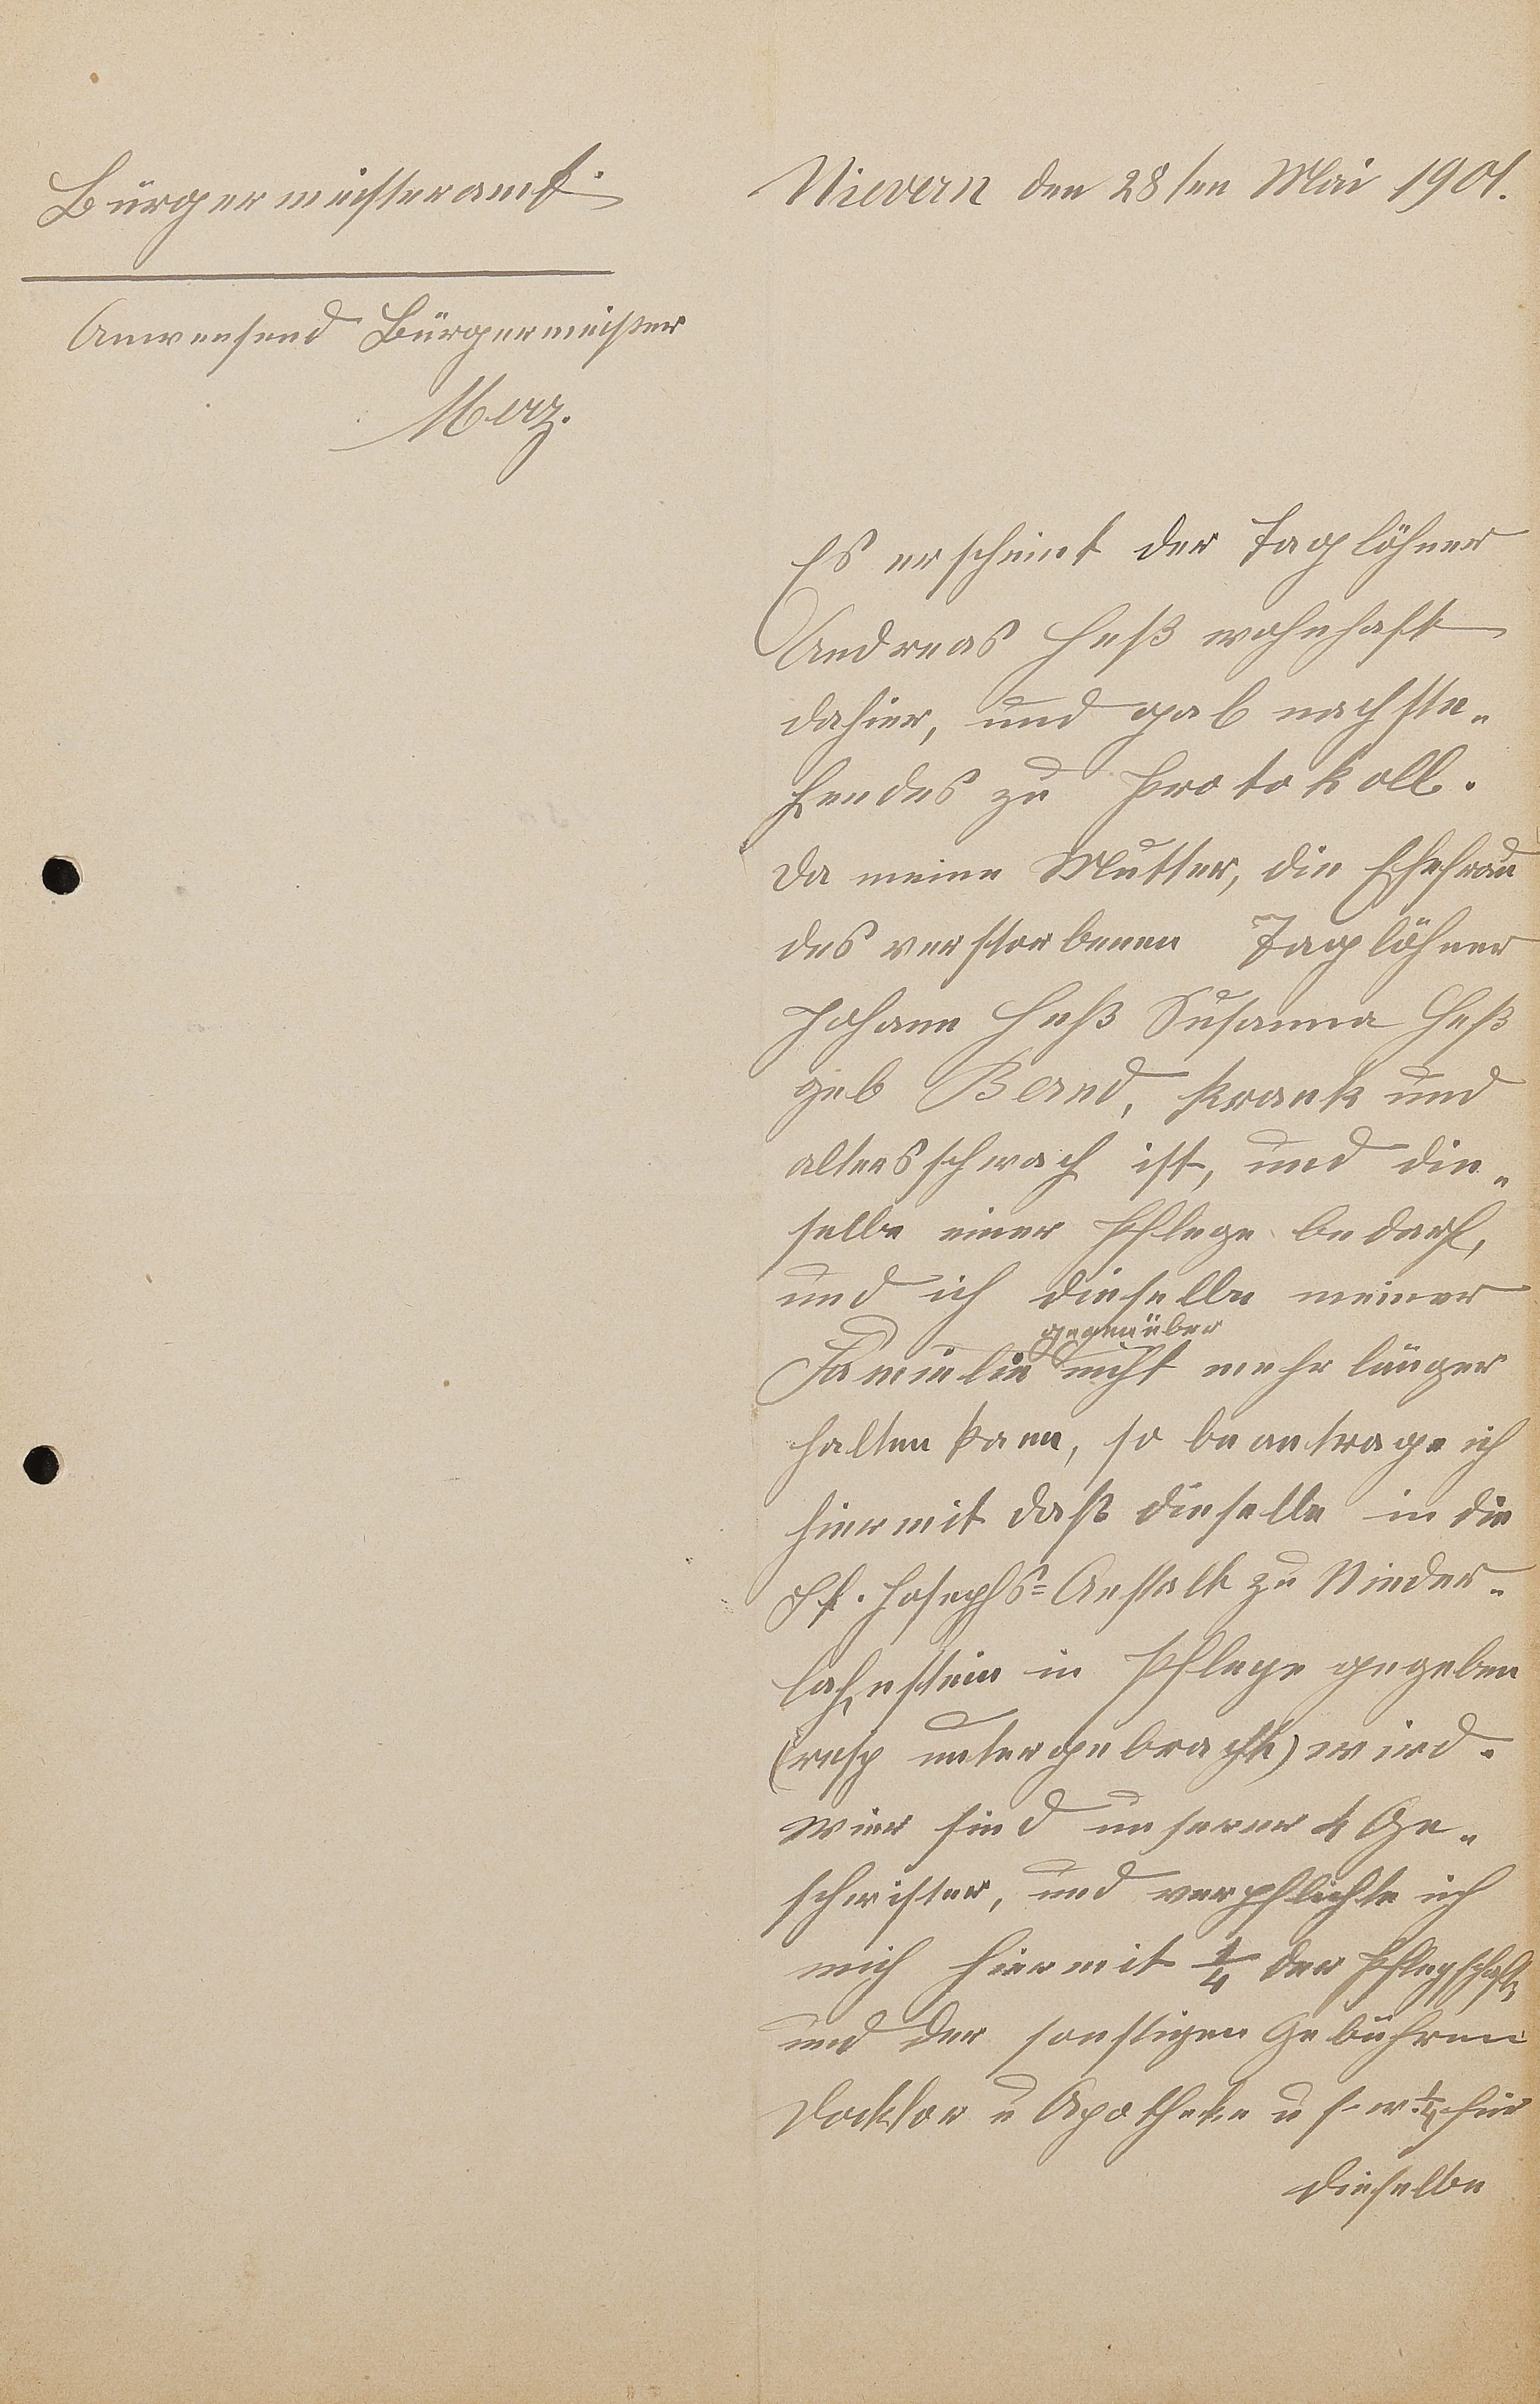 Bürgermeisteramt.
Anwesend Bürgermeister
Merz.
Nievern den 28ten Mai 1901.
Es erscheint der Taglöhner
Andreas Heß wohnhaft
dahier, und gab nachste-
hendes zu Protokoll.
Da meine Mutter, die Ehefrau
des verstorbenen Taglöhner
Johann Heß Susanna Heß
geb Band, krank und
altersschwach ist, und die-
selbe einer Pflege bedarf,
und ich dieselbe meiner
gegenüber
Famielie nicht mehr länger
halten kann, so beantrage ich
hiermit daß dieselbe in die
St. Josephs=Anstalt zu Nieder-
lahnstein in Pflege gegeben
(resp untergebracht) wird.
Wier sind unserer 4 Ge-
schwister, und verpflichte ich
mich hiermit 1/4 der Pflegschaft,
und der sonstigen Gebühren
Doktor u Apotheke u s. w. 1/4 für
dieselbe